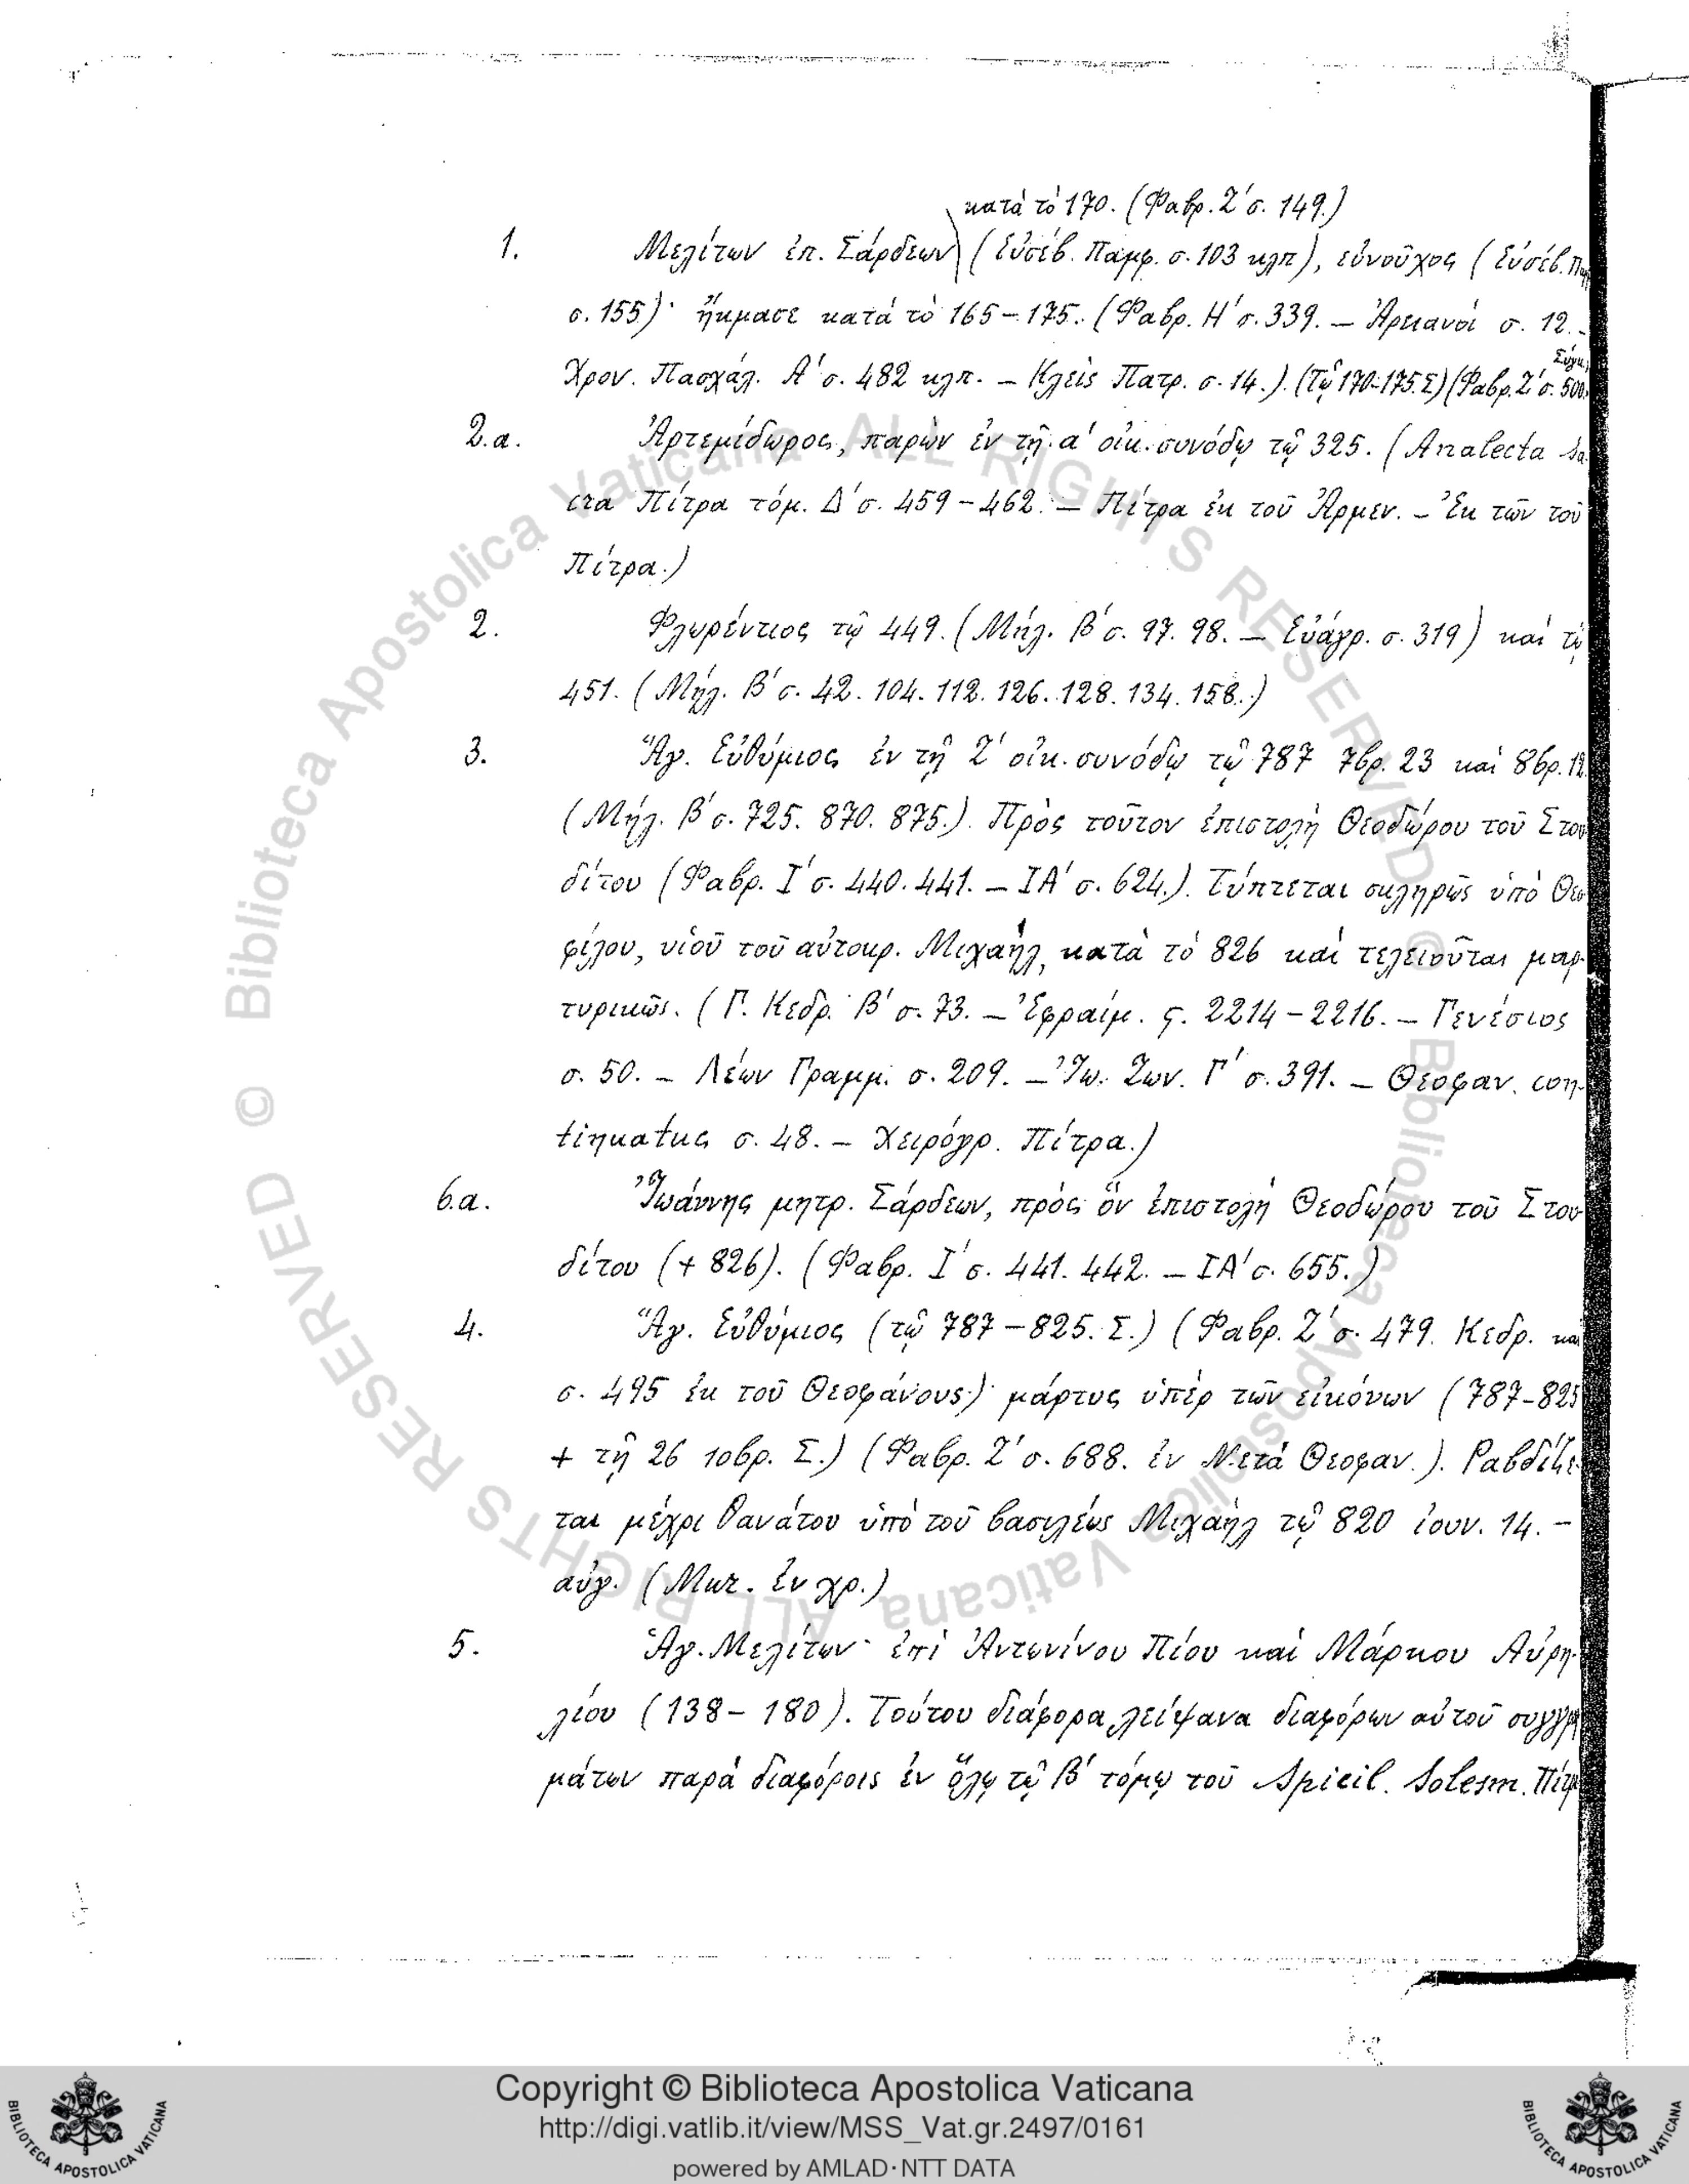 κατὰ τὸ 170. (Φαβρ. Ζ' σ. 149.)
1. Μελίτων ἐπ. Σάρδεων (Εὐσέβ. Παμφ. σ. 103 κλπ), εὐνοῦχος (Εὐσέβ. Παμφ
σ. 155)· ἤκμασε κατὰ τὸ 165-175. (Φαβρ. Η' σ. 339. — Ἀρειανοὶ σ. 12. -
Σύγκ.
Χρον. Πασχάλ. Α' σ. 482 κλπ. — Κλεὶς Πατρ. σ. 14.) (Τῷ 170-175. Σ) (Φαβρ. Ζ' σ. 500.
2.α. Ἀρτεμίδωρος, παρὼν ἐν τῇ α' οἰκ. συνόδῳ τῷ 325. (Analecta Sa-
cra Πίτρα τόμ. Δ' σ. 459-462. — Πίτρα ἐκ τοῦ Ἀρμεν. - Ἐκ τῶν τοῦ
Πίτρα.)
2. Φλωρέντιος τῷ 449. (Μήλ. Β' σ. 97. 98. — Εὐάγρ. σ. 319) καὶ τῷ
451. (Μήλ. Β' σ. 42. 104. 112. 126. 128. 134. 158.)
3. Ἅγ. Εὐθύμιος ἐν τῇ Ζ' οἰκ. συνόδῳ τῷ 787 7βρ. 23 καὶ 8βρ. 12.
(Μήλ. Β' σ. 725. 870. 875.). Πρὸς τοῦτον ἐπιστολὴ Θεοδώρου τοῦ Στου
δίτου (Φαβρ. Ι' σ. 440. 441. — ΙΑ' σ. 624.). Τύπτεται σκληρῶς ὑπὸ Θεο
φίλου, υἱοῦ τοῦ αὐτοκρ. Μιχαήλ, κατὰ τὸ 826 καὶ τελειοῦται μαρ-
τυρικῶς. (Γ. Κεδρ. Β' σ. 73. — Ἐφραίμ. ς. 2214-2216. — Γενέσιος
σ. 50. — Λέων Γραμμ. σ. 209. — Ἰω. Ζων. Γ' σ. 391. — Θεοφαν. con-
tinuatus σ. 48. — Χειρόγρ. Πίτρα.)
6.α. Ἰωάννης μητρ. Σάρδεων, πρὸς ὃν ἐπιστολὴ Θεοδώρου τοῦ Στου
δίτου (+ 826). (Φαβρ. Ι' σ. 441. 442. — ΙΑ' σ. 655.)
4. Ἅγ. Εὐθύμιος (τῷ 787-825. Σ.) (Φαβρ. Ζ' σ. 479. Κεδρ. καὶ
σ. 495 ἐκ τοῦ Θεοφάνους)· μάρτυς ὑπὲρ τῶν εἰκόνων (787-825
+ τῇ 26 10βρ. Σ.) (Φαβρ. Ζ' σ. 688. ἐν Μετὰ Θεοφαν.). Ραβδίζε-
ται μέχρι θανάτου ὑπὸ τοῦ βασιλέως Μιχαὴλ τῷ 820 ἰουν. 14. -
αὐγ. (Μυτ. ἐν χρ.)
5. Ἅγ. Μελίτων· ἐπὶ Ἀντωνίνου Πίου καὶ Μάρκου Αὐρη-
λίου (138-180). Τούτου διάφορα λείψανα διαφόρων αὐτοῦ συγγρα
μάτων παρὰ διαφόροις ἐν ὅλῳ τῷ Β' τόμῳ τοῦ Spicil. Solesm. Πίτρ
© Biblioteca Apostolica Vaticana ALL RIGHTS RESERVED © Biblioteca Apostolica Vaticana ALL RIGHTS RESERVED
BIBLIOTECA APOSTOLICA VATICANA
Copyright © Biblioteca Apostolica Vaticana
http://digi.vatlib.it/view/MSS_Vat.gr.2497/0161
powered by AMLAD·NTT DATA
BIBLIOTECA APOSTOLICA VATICANA